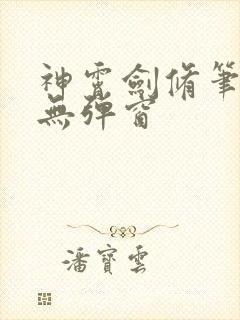 神霄劍脩筆
無彈窗
潘寶雲